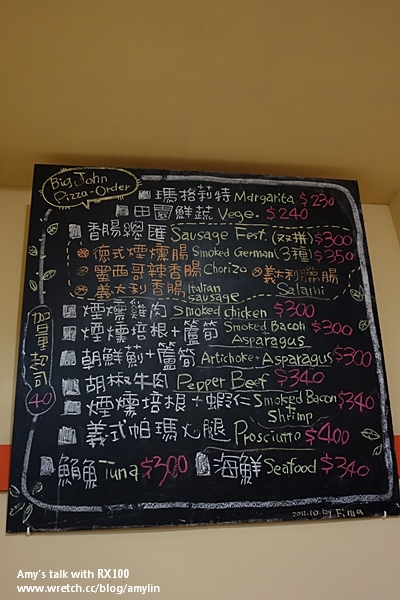 Big John
Pizza-Order
瑪格莉特 Margarita $230
田園鮮蔬 Vege. $240
香腸總匯 Sausage Fest. (双拼) $300
德式煙燻腸 Smoked German (3種) $350
墨西哥辣香腸 Chorizo 義大利臘腸
義大利香腸 Italian sausage Salami
煙燻雞肉 Smoked chicken $300
煙燻培根+蘆筍 Smoked Bacon + Asparagus $300
朝鮮薊+蘆筍 Artichoke+Asparagus $300
胡椒牛肉 Pepper Beef $340
煙燻培根+蝦仁 Smoked Bacon + Shrimp $340
義式帕瑪火腿 Prosciutto $400
鮪魚 Tuna $300 海鮮 Seafood $340
加量起司 40
2012.10 by Fima
Amy's talk with RX100
www.wretch.cc/blog/amylin